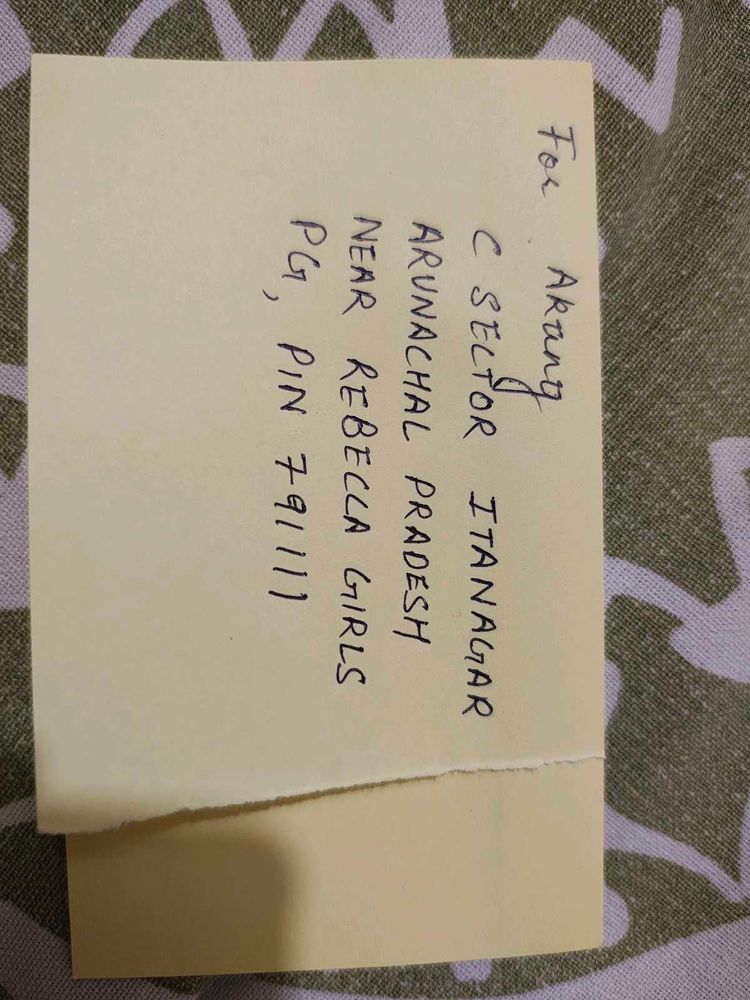 For Akang
C SECTOR ITANAGAR
ARUNACHAL PRADESH
NEAR REBECCA GIRLS
PG, PIN 791111